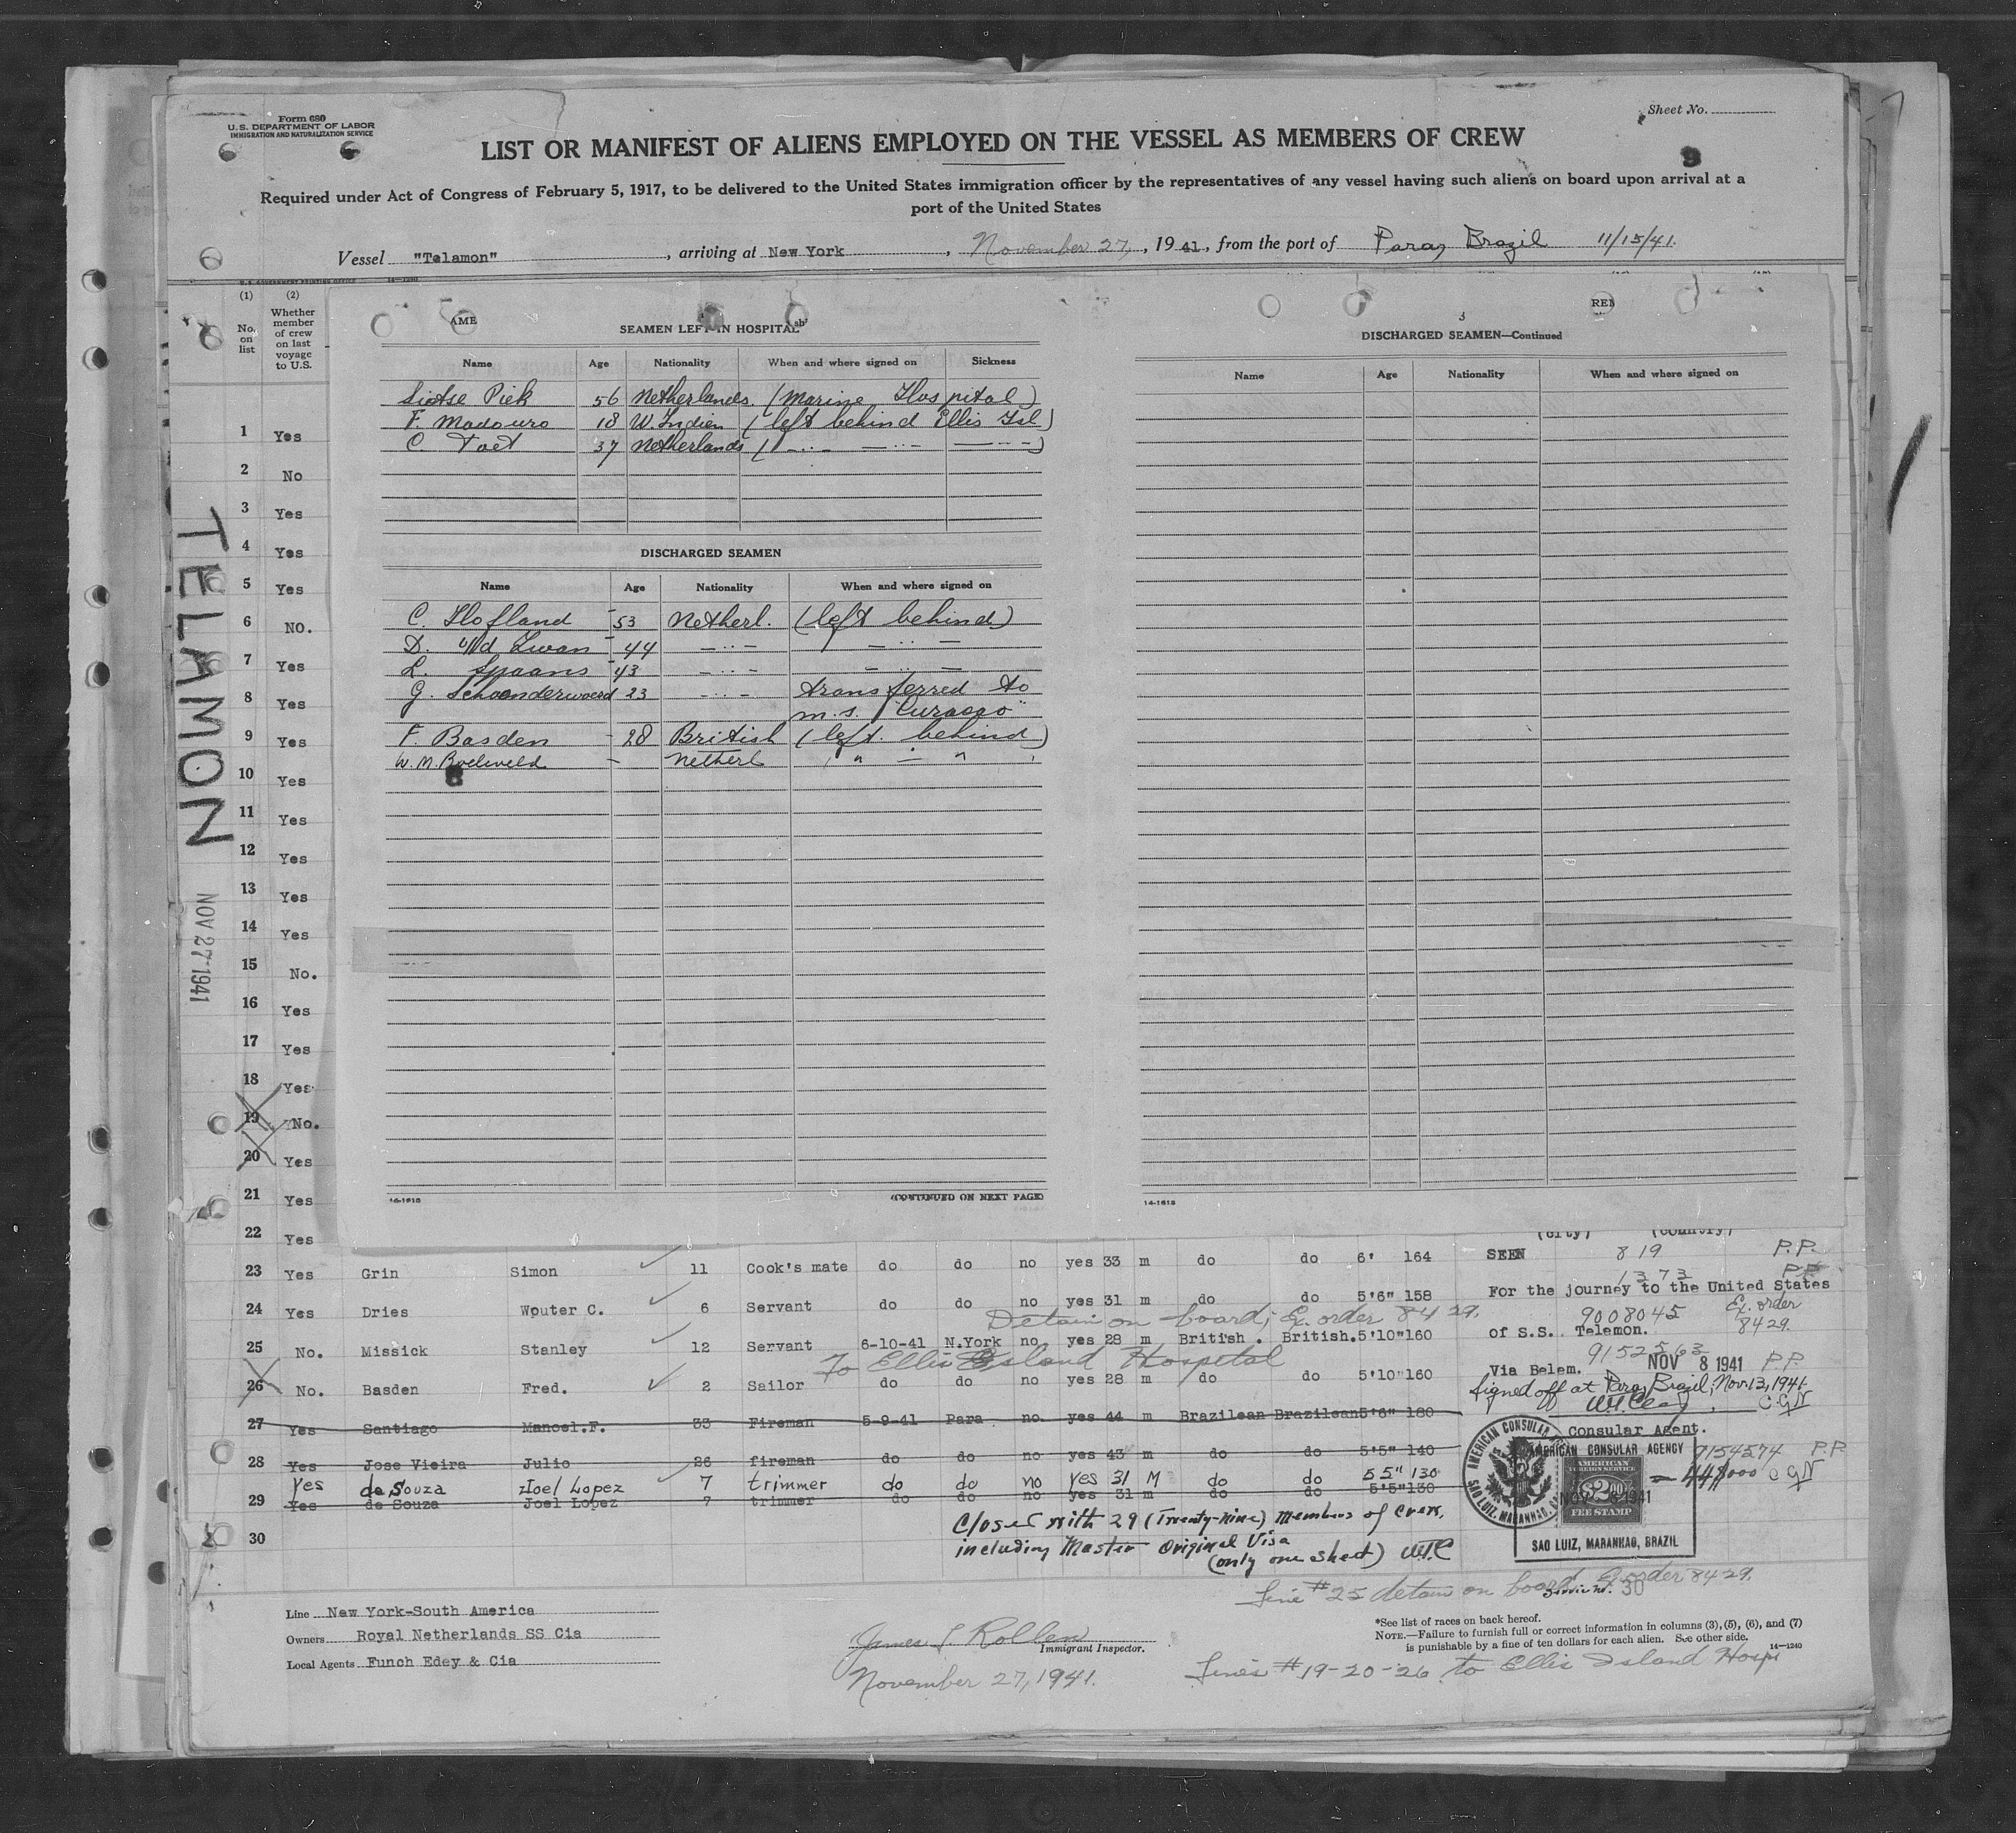 Form 680
U.S. DEPARTMENT OF LABOR
IMMIGRATION AND NATURALIZATION SERVICE
Sheet No.
LIST OR MANIFEST OF ALIENS EMPLOYED ON THE VESSEL AS MEMBERS OF CREW
9
Required under Act of Congress of February 5, 1917, to be delivered to the United States immigration officer by the representatives of any vessel having such aliens on board upon arrival at a
port of the United States
Vessel "Telamon", arriving at New York, November 27, 1941, from the port of Para, Brazil 11/15/41.
(1) (2)
No. on list
Whether member of crew on last voyage to U.S.
TELAMON
NOV 27 1941
SEAMEN LEFT IN HOSPITAL
Name Age Nationality When and where signed on Sickness
Siotse Piek 56 Netherlands (Marine Hospital)
F. Madouro 18 W. Indien (left behind Ellis Isl)
C. Toet 37 Netherlands
DISCHARGED SEAMEN
Name Age Nationality When and where signed on
C. Hofland 53 Netherl. (left behind)
D. v/d Zwan 44
L. Spaans 43
G. Schoonderwoerd 23 transferred to
m.s. "Curaçao"
F. Basden 28 British (left behind)
W. M. Netherl " "
14-1618 (CONTINUED ON NEXT PAGE)
3
DISCHARGED SEAMEN—Continued
Name Age Nationality When and where signed on
14-1618
1 Yes
2 No
3 Yes
4 Yes
5 Yes
6 NO.
7 Yes
8 Yes
9 Yes
10 Yes
11 Yes
12 Yes
13 Yes
14 Yes
15 No.
16 Yes
17 Yes
18 Yes
19 No.
20 Yes
21 Yes
22 Yes
(City) (Country)
23 Yes Grin Simon 11 Cook's mate do do no yes 33 m do do 6' 164 SEEN 819 P.P.
1373 P.P.
For the journey to the United States
24 Yes Dries Wouter C. 6 Servant do do no yes 31 m do do 5'6" 158
Detain on board; Ex. order 8429. 9008045 Ex. order 8429.
of S.S. Telemon.
25 No. Missick Stanley 12 Servant 6-10-41 N.York no yes 28 m British. British. 5'10" 160
To Ellis Island Hospital 9152563
Via Belem. NOV 8 1941 P.P.
26 No. Basden Fred. 2 Sailor do do no yes 28 m do do 5'10" 160
Signed off at Para, Brazil, Nov. 13, 1941.
27 Yes Santiago Manoel.F. 33 Fireman 5-9-41 Para no yes 44 m Brazilean Brazilean 5'6" 180
Consular Agent.
28 Yes Jose Vieira Julio 26 fireman do do no yes 43 m do do 5'5" 140
9154574 P.P.
Yes de Souza Joel Lopez 7 trimmer do do no yes 31 M do do 5 5" 130
29 Yes de Souza Joel Lopez 7 trimmer do do no yes 31 m do do 5'5" 130
30
Closed with 29 (Twenty-nine) members of crew,
including Master Original Visa
(only one sheet) W.T.C
AMERICAN CONSULAR AGENCY
AMERICAN FOREIGN SERVICE
$2.00
FEE STAMP
NOV 8 1941
SAO LUIZ, MARANHAO, BRAZIL
AMERICAN CONSULAR
SAO LUIZ, MARANHAO,
Line #25 detain on board Ex order 8429.
Service No. 30
Line New York-South America
Owners Royal Netherlands SS Cia
Local Agents Funch Edey & Cia
James Rollen
Immigrant Inspector.
November 27, 1941.
*See list of races on back hereof.
NOTE.—Failure to furnish full or correct information in columns (3), (5), (6), and (7)
is punishable by a fine of ten dollars for each alien. See other side. 14—1240
Lines #19-20-26 to Ellis Island Hospi